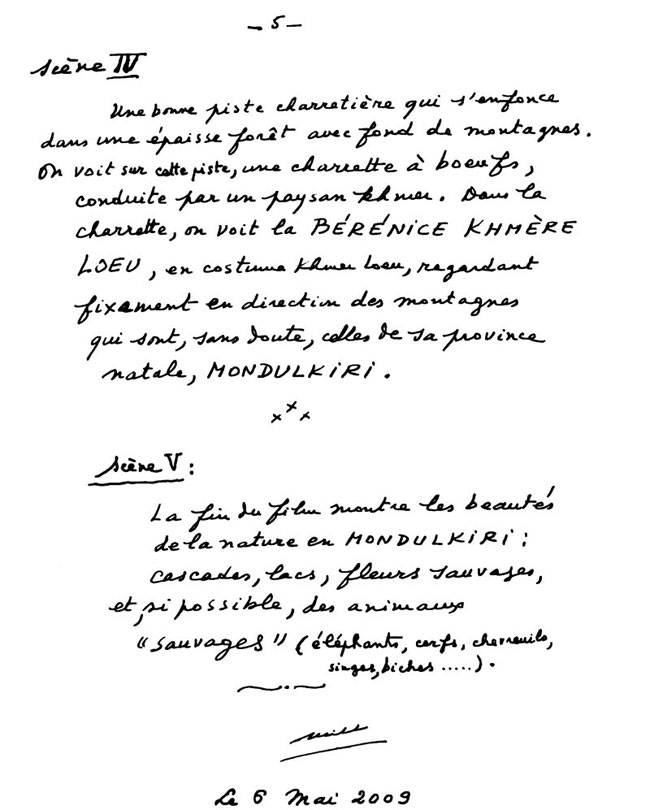 - 5 -
Scène IV
Une bonne piste charretière qui s'enfonce
dans une épaisse forêt avec fond de montagnes.
On voit sur cette piste, une charrette à boeufs,
conduite par un paysan khmer. Dans la
charrette, on voit la BÉRÉNICE KHMÈRE
LOEU, en costume khmer loeu, regardant
fixement en direction des montagnes
qui sont, sans doute, celles de sa province
natale, MONDULKIRI.
x x x
Scène V :
La fin du film montre les beautés
de la nature en MONDULKIRI :
cascades, lacs, fleurs sauvages,
et, si possible, des animaux
"sauvages" (éléphants, cerfs, chevreuils,
singes, biches .....).
Le 6 Mai 2009